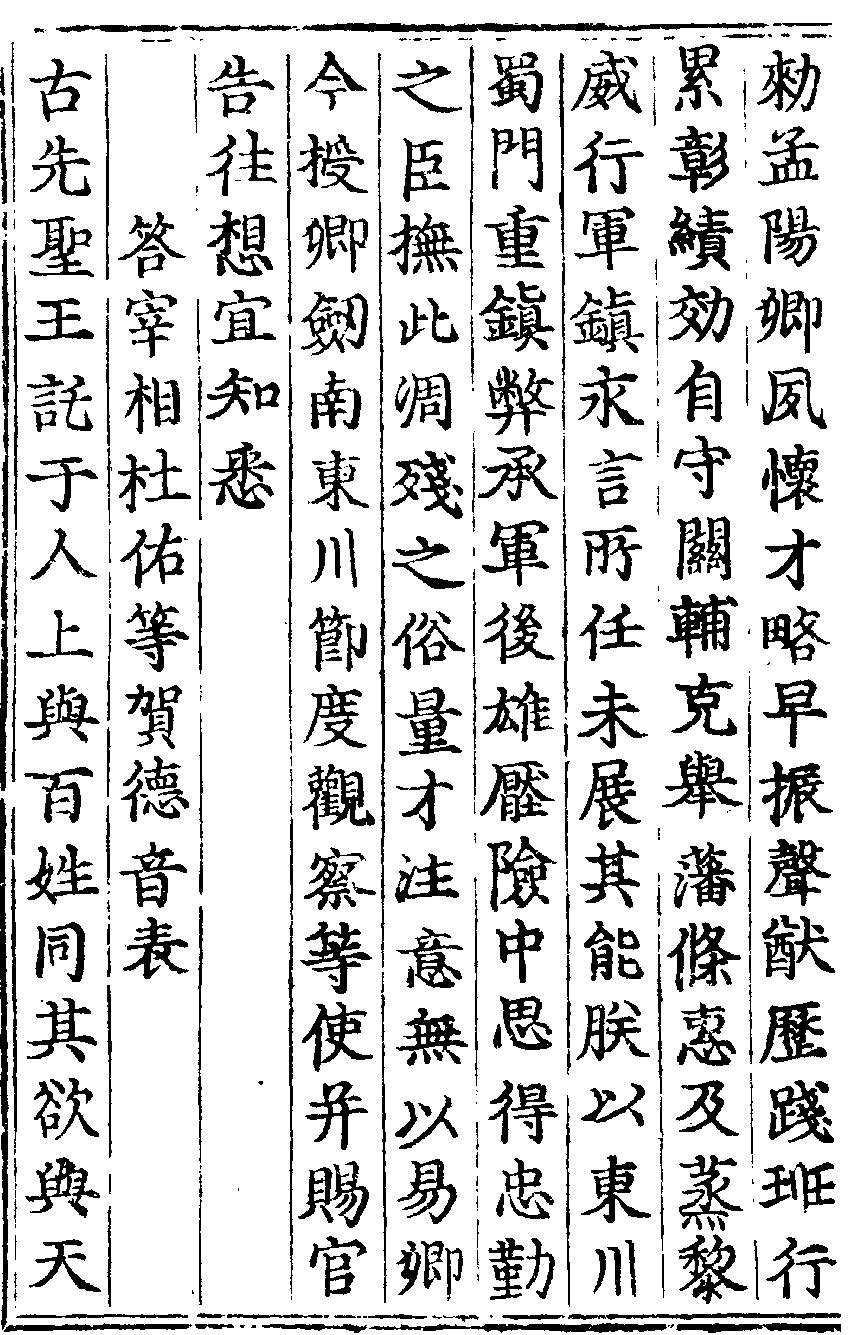 勑孟陽卿夙懷才略早振聲猷歷踐班行
累彰績効自守關輔克舉藩條惠及蒸黎
威行軍鎮永言所任未展其能朕以東川
蜀門重鎮弊承軍後雄壓險中思得忠勤
之臣撫此凋殘之俗量才注意無以易卿
今授卿劒南東川節度觀察等使并賜官
告往想宜知悉
答宰相杜佑等賀德音表
古先聖王託于人上與百姓同其欲與天